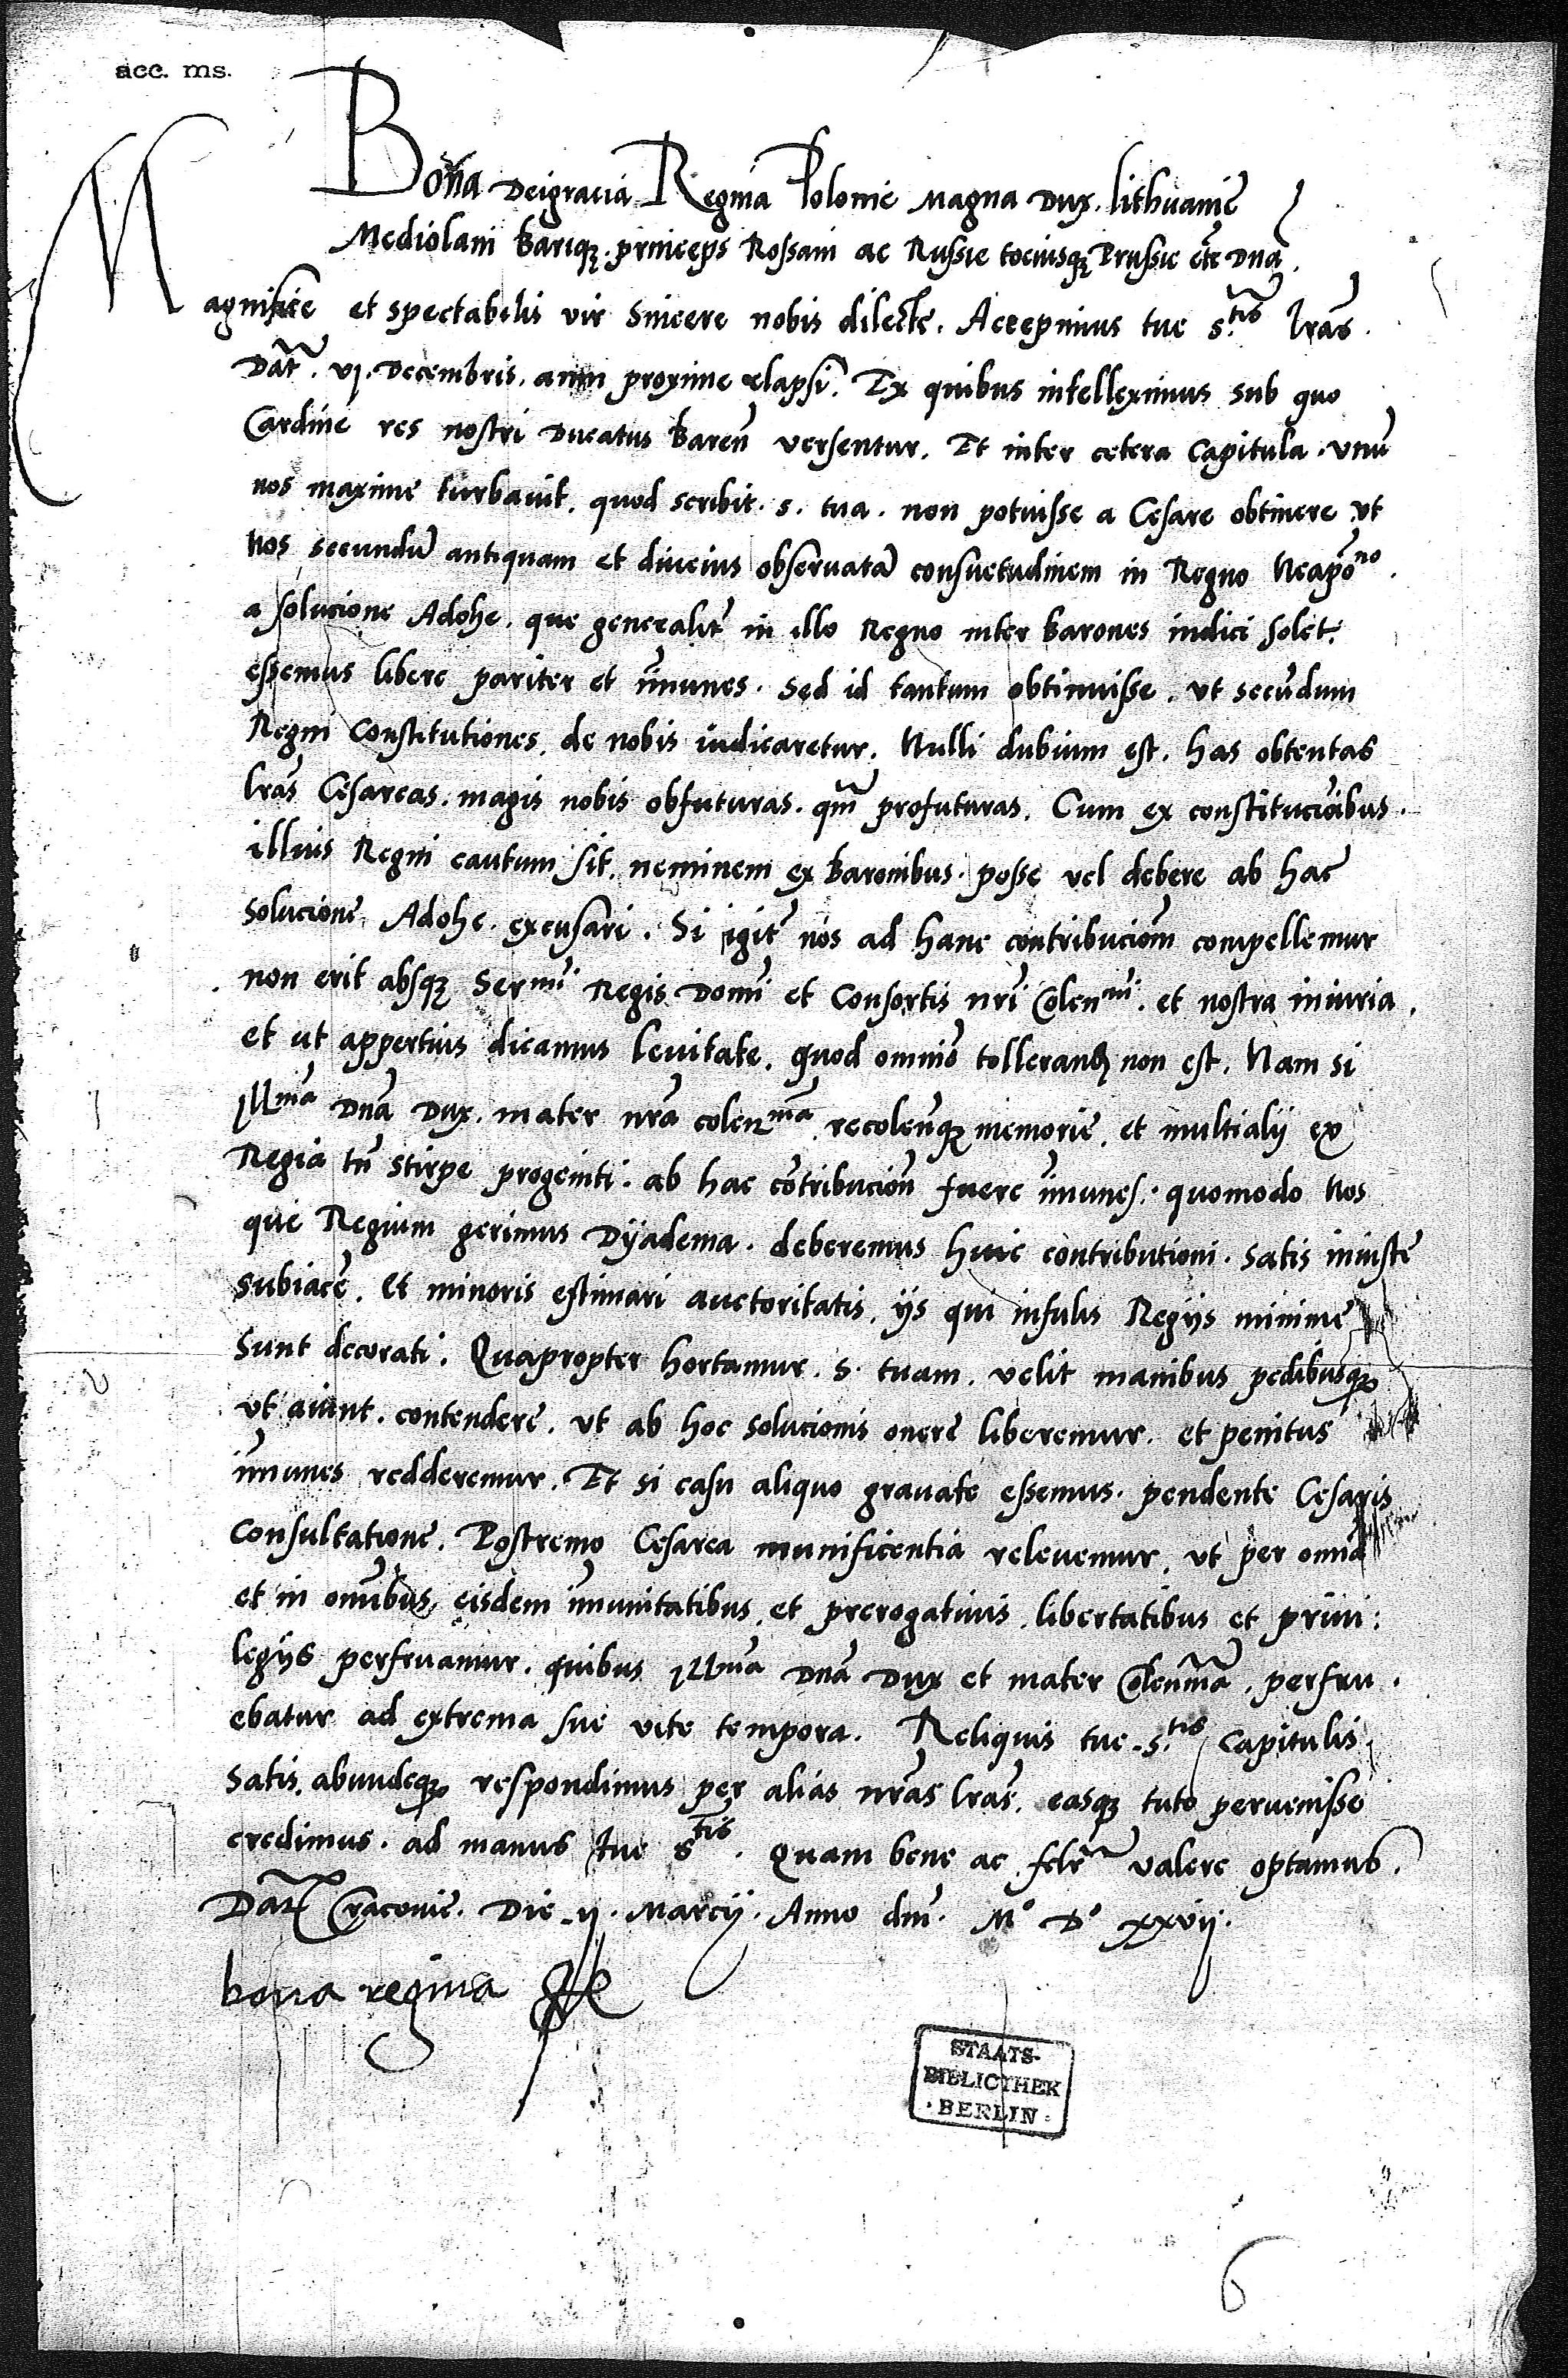 acc. ms.
Bona Dei gracia Regina Polonie Magna Dux Lithuanie
Mediolani Bariq̃ȝ princeps Rossani ac Russie tociusqȝ Prussie etc̃ Dnã.
Magnifice et spectabilis vir sincere nobis dilecte. Accepimus tue S.tis lrãs.
Dat̃. vj. Decembris. anni proxime elapsi. Ex quibus intelleximus sub quo
Cardine res nostri Ducatus Bareñ versentur. Et inter cetera Capitula. vnũ
nos maxime turbauit. quod scribit. s. tua. non potuisse a Cesare obtinere ut
Nos secundũ antiquam et diucius obseruatã consuetudinem in Regno Neapõno.
a solucione Adohe. que generalit̃ in illo Regno inter Barones indici solet.
essemus libere pariter et im̃unes. Sed id tantum obtinuisse. ut secũdum
Regni Constitutiones. de nobis iudicaretur. Nulli dubium est. has obtentas
lrãs Cesareas. magis nobis obfuturas. qm̃ profuturas. Cum ex constitucõibus.
illius Regni cautum sit. neminem ex Baronibus. posse vel debere ab hac
solucione Adohe. excusari. Si igit̃ nos ad hanc contribucionẽ compellemur
non erit absqȝ Sermi Regis Domĩ et Consortis nrĩ Colenmi. et nostra iniuria.
et ut appertius dicamus leuitate. quod omnino tollerandȝ non est. Nam si
Illma Dnã Dux. mater nrã colenma. recolenqȝ memorie. et multi alij ex
Regia tñ stirpe progeniti. ab hac cõtribucioñ fuere im̃unes. quomodo Nos
que Regium gerimus Dyadema. deberemus huic contributioni. satis iniuste
subiacẽ. Et minoris estimari auctoritatis. ijs qui infulis Regijs minime
sunt decorati. Quapropter hortamur. S. tuam. velit manibus pedibusqȝ
ut aiunt. contendere. ut ab hoc solucionis onere liberemur. et penitus
im̃unes redderemur. Et si casu aliquo grauate essemus. pendente Cesaris
Consultatione. Postremo Cesarea munificentia releuemur. ut per omnia
et in om̃ibus. eisdem im̃unitatibus. et prerogatiuis. libertatibus et priui:
legijs perfruamur. quibus Illma Dnã Dux et mater Colenma. perfru.
ebatur ad extrema sue vite tempora. Reliquis tue S.tis Capitulis
satis abundeqȝ respondimus per alias nrãs lrãs. easqȝ tuto peruenisse
credimus. ad manus tue Stis. Quam bene ac felr̃ valere optamus.
Dat̃ Cracouie. Die ij. Marcij. Anno dnĩ. Mº Dº xxvij.
bona regina
STAATS-
BIBLIOTHEK
·BERLIN·
6